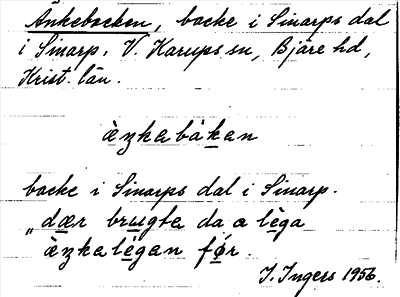 Änkebacken, backe i Sinarps dal
i Sinarp, V. Karups sn, Bjäre hd,
Krist. län.
àŋkabàkan
backe i Sinarps dal i Sinarp.
„dær brugte da a lèga
àŋkalègan før.
I. Ingers 1956.